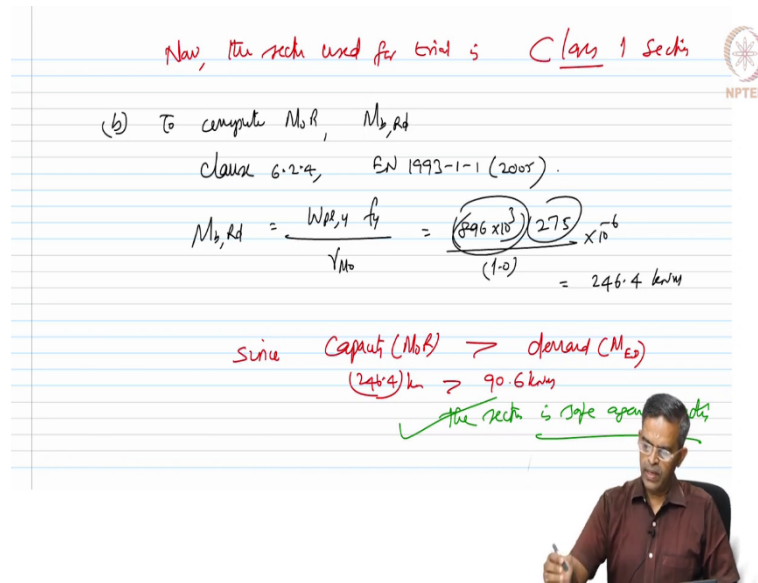 Now, the sectn used for trial is Class 1 Sectn
NPTEL
(b) To compute MoR, Mb,Rd
clause 6.2.4, EN 1993-1-1 (2005).
Mb,Rd = Wpl,y fy / γM0 = (896 x10^3)(275) / (1.0) x10^-6
= 246.4 kNm
Since Capacity (MoR) > demand (MED)
(246.4) kn > 90.6 kNm
the sectn is safe